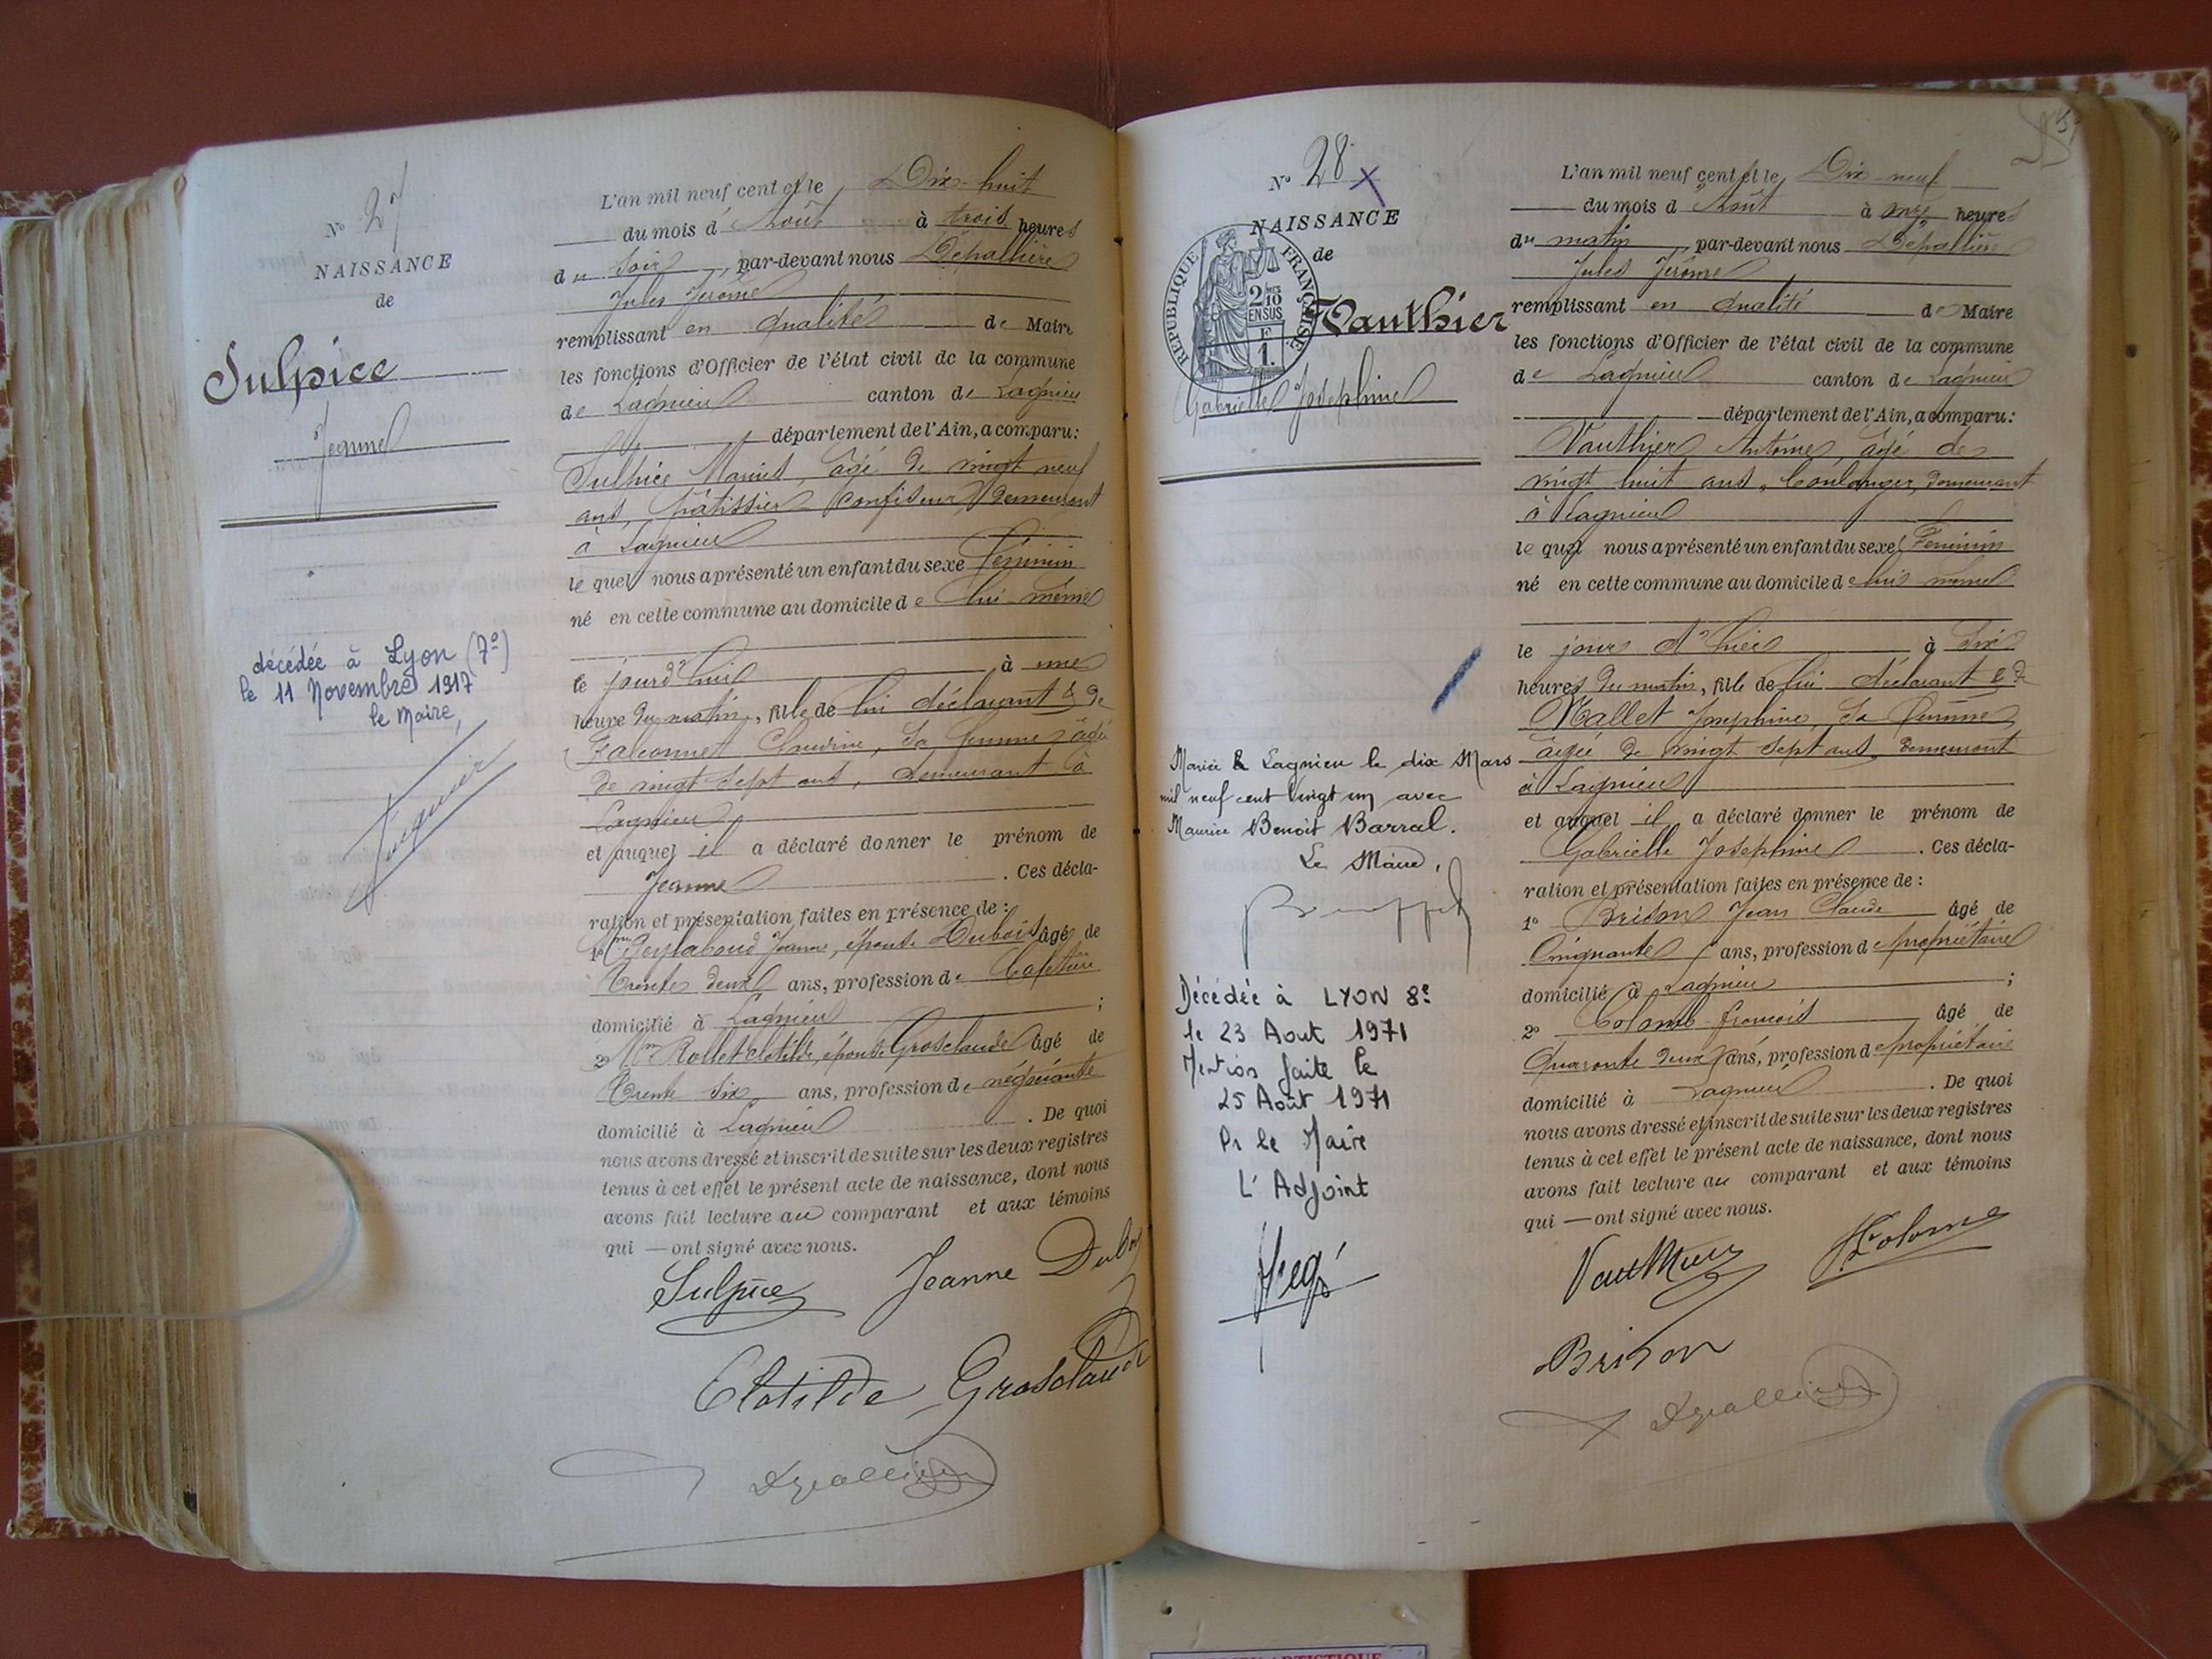 N° 27
NAISSANCE
de
Sulpice
Jeanne
décédée à Lyon (7e)
le 11 Novembre 1917
le Maire,
L'an mil neuf cent et le Dix-huit
du mois d'Août à trois heures
du soir, par-devant nous Dépallière
Jules Jérôme
remplissant en qualité de Maire
les fonctions d'Officier de l'état civil de la commune
de Lagnieu canton de Lagnieu
département de l'Ain, a comparu:
Sulpice Marius, âgé de vingt neuf
ans, pâtissier confiseur, demeurant
à Lagnieu
lequel nous a présenté un enfant du sexe Féminin
né en cette commune au domicile de lui même
le jourd'hui à une
heure du matin, fille de lui déclarant & de
Falconnet Claudine, sa femme âgée
de vingt sept ans, demeurant à
Lagnieu
et auquel il a déclaré donner le prénom de
Jeanne. Ces décla-
ration et présentation faites en présence de:
1° Jeanne, épouse Dubois âgé de
Trente deux ans, profession de
domicilié à Lagnieu;
2° Mme Rollet Clotilde, épouse Grosclaude âgé de
Trente six ans, profession de négociante
domicilié à Lagnieu. De quoi
nous avons dressé et inscrit de suite sur les deux registres
tenus à cet effet le présent acte de naissance, dont nous
avons fait lecture au comparant et aux témoins
qui — ont signé avec nous.
Sulpice Jeanne Dubois
Clotilde Grosclaude
Dépallière
N° 28 X
NAISSANCE
de
REPUBLIQUE FRANÇAISE
2/10
EN SUS
F
1.
Vauthier
Gabrielle Joséphine
Mariée à Lagnieu le dix Mars
mil neuf cent vingt un avec
Maurice Benoit Barral.
Le Maire,
Décédée à LYON 8e
le 23 Aout 1971
Mention faite le
25 Août 1971
Pr le Maire
L'Adjoint
L'an mil neuf cent et le Dix-neuf
du mois d'Août à onze heures
du matin, par-devant nous Dépallière
Jules Jérôme
remplissant en qualité de Maire
les fonctions d'Officier de l'état civil de la commune
de Lagnieu canton de Lagnieu
département de l'Ain, a comparu:
Vauthier Antoine, âgé de
vingt huit ans, boulanger, demeurant
à Lagnieu
lequel nous a présenté un enfant du sexe Féminin
né en cette commune au domicile de lui même
le jour d'hier à six
heures du matin, fille de lui déclarant & de
Mallet Joséphine, sa femme,
âgée de vingt sept ans, demeurant
à Lagnieu
et auquel il a déclaré donner le prénom de
Gabrielle Joséphine. Ces décla-
ration et présentation faites en présence de:
1° Brison Jean Claude âgé de
Cinquante ans, profession de propriétaire
domicilié à Lagnieu;
2° Colomb françois âgé de
Quarante deux ans, profession de propriétaire
domicilié à Lagnieu. De quoi
nous avons dressé et inscrit de suite sur les deux registres
tenus à cet effet le présent acte de naissance, dont nous
avons fait lecture au comparant et aux témoins
qui — ont signé avec nous.
Vauthier F. Colomb
Brison
Dépallière